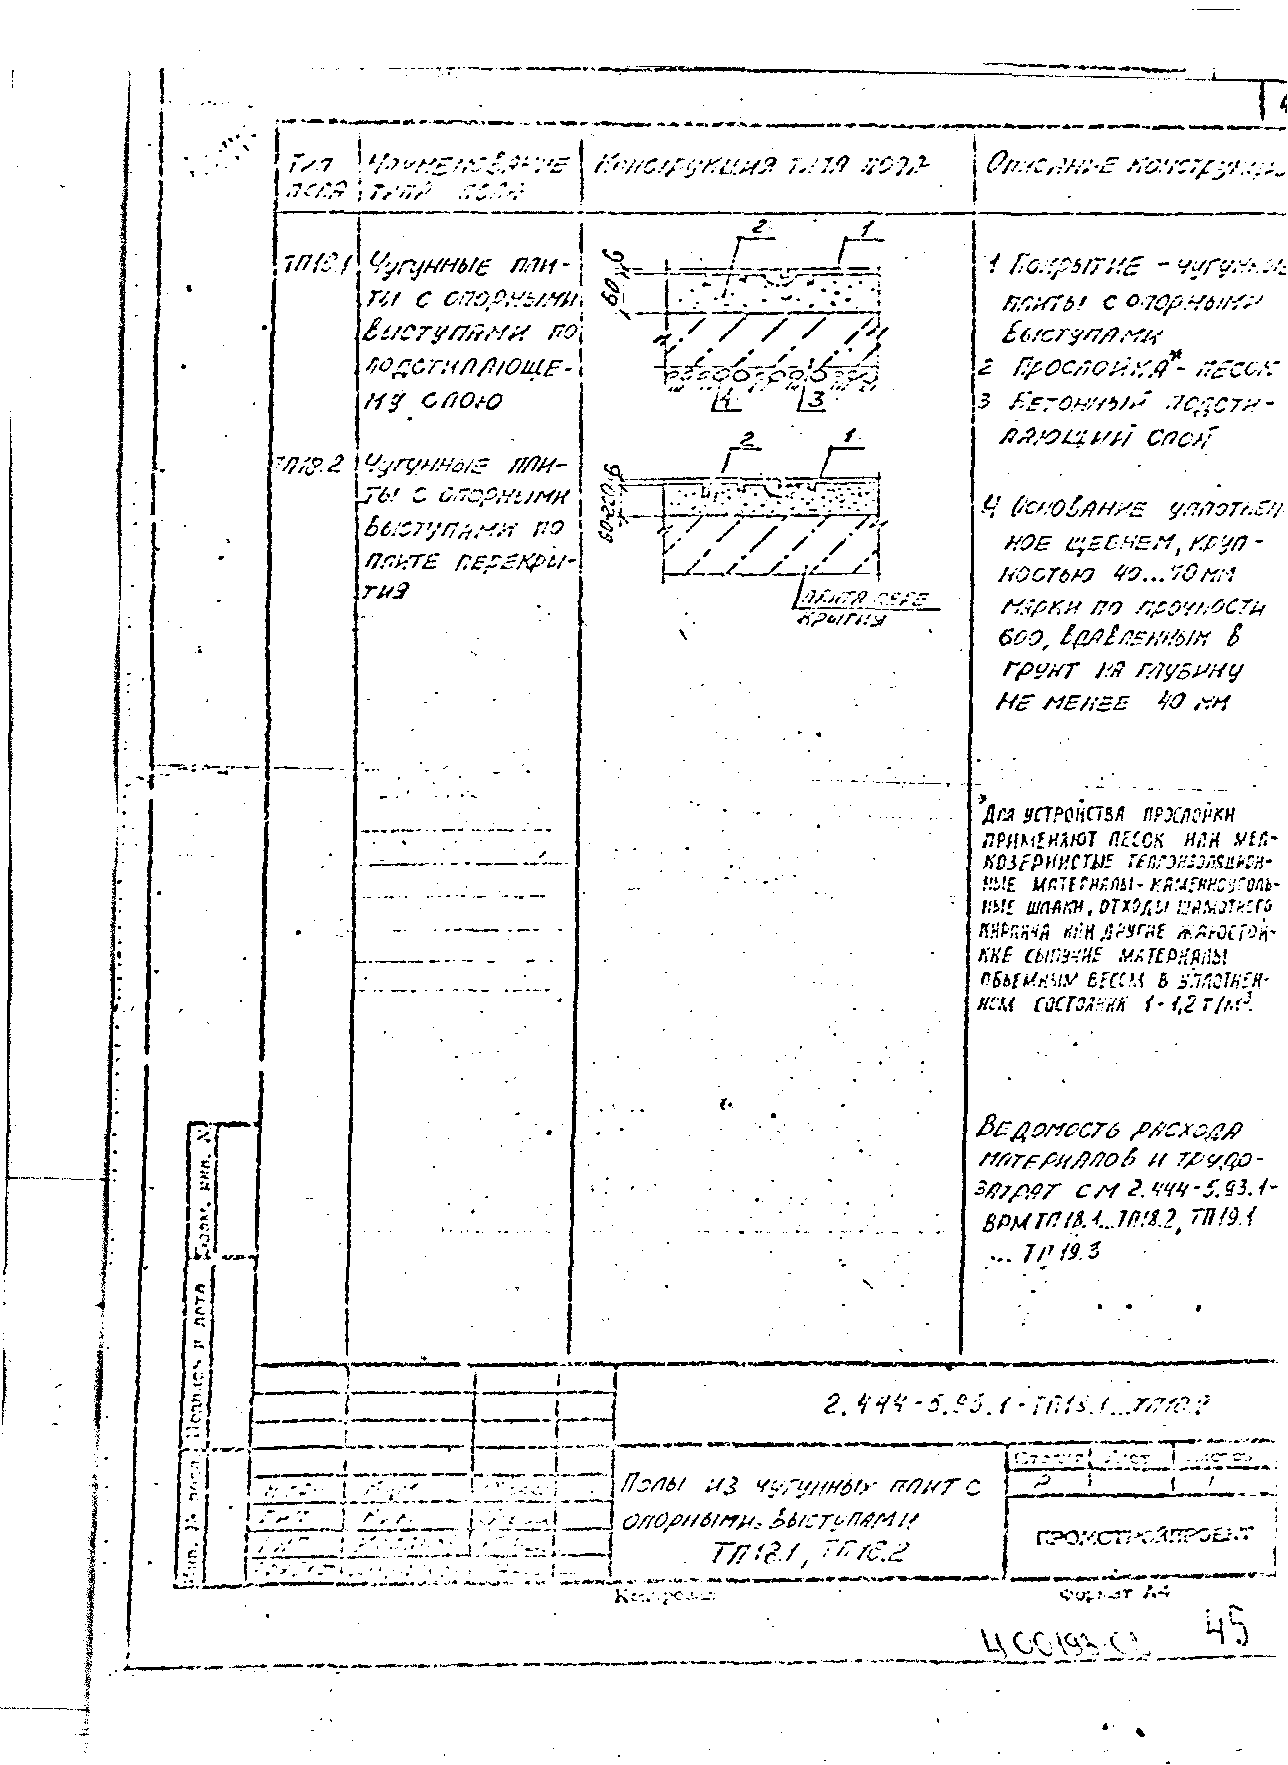 Тип
пола
Наименование
типа пола
Конструкция типа пола
Описание конструкции
ТП18.1
Чугунные пли-
ты с опорными
выступами по
подстилающе-
му слою
2 1
6
60
4 3
1 Покрытие - чугунные
плиты с опорными
выступами
2 Прослойка* - песок
3 Бетонный подсти-
лающий слой
ТП18.2
Чугунные пли-
ты с опорными
выступами по
плите перекры-
тия
2 1
6
60-220
плита пере
крытия
4 Основание уплотнен-
ное щебнем, круп-
ностью 40...70 мм
марки по прочности
600, вдавленным в
грунт на глубину
не менее 40 мм
*Для устройства прослойки
применяют песок или мел-
козернистые теплоизоляцион-
ные материалы - каменноуголь-
ные шлаки, отходы шамотного
кирпича или другие жаростой-
кие сыпучие материалы
объемным весом в уплотнен-
ном состоянии 1-1,2 т/м³.
Ведомость расхода
материалов и трудо-
затрат см 2.444-5.93.1-
ВРМ ТП18.1...ТП18.2, ТП19.1
... ТП19.3
Взам. инв. №
Подпись и дата
Инв. № подл.
2.444-5.93.1-ТП18.1...ТП18.2
Полы из чугунных плит с
опорными выступами
ТП18.1, ТП18.2
Стадия Лист Листов
Р 1
ПРОМСТРОЙПРОЕКТ
Копировал
Формат А4
45